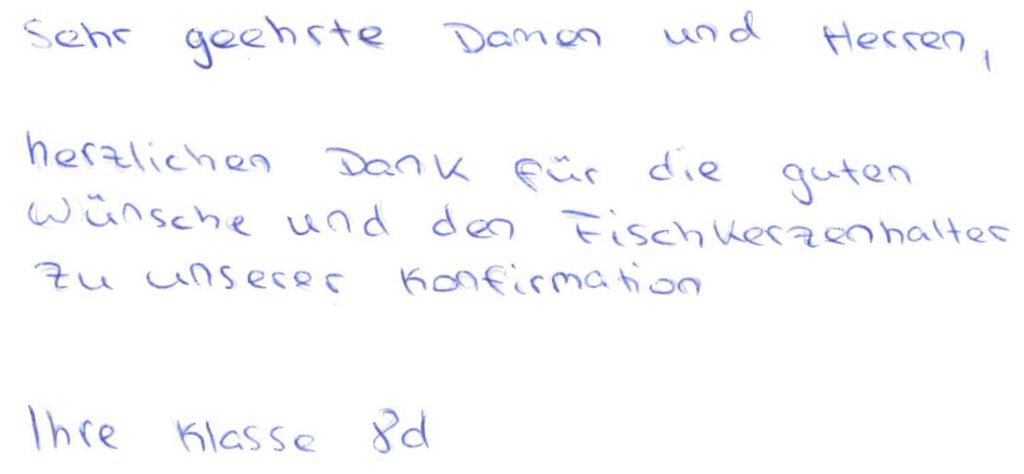 Sehr geehrte Damen und Herren,
herzlichen Dank für die guten
Wünsche und den Fischkerzenhalter
zu unserer Konfirmation
Ihre Klasse 8d